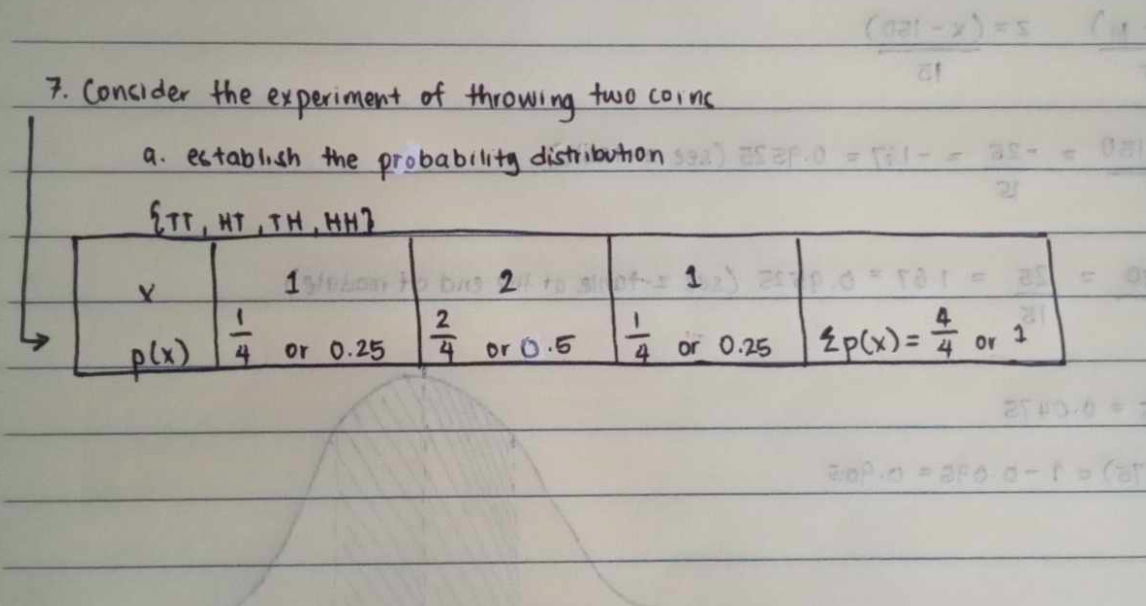 7. Consider the experiment of throwing two coins
a. establish the probability distribution
{TT, HT, TH, HH}
x 1 2 1
p(x) 1/4 or 0.25 2/4 or 0.5 1/4 or 0.25 Σp(x) = 4/4 or 1